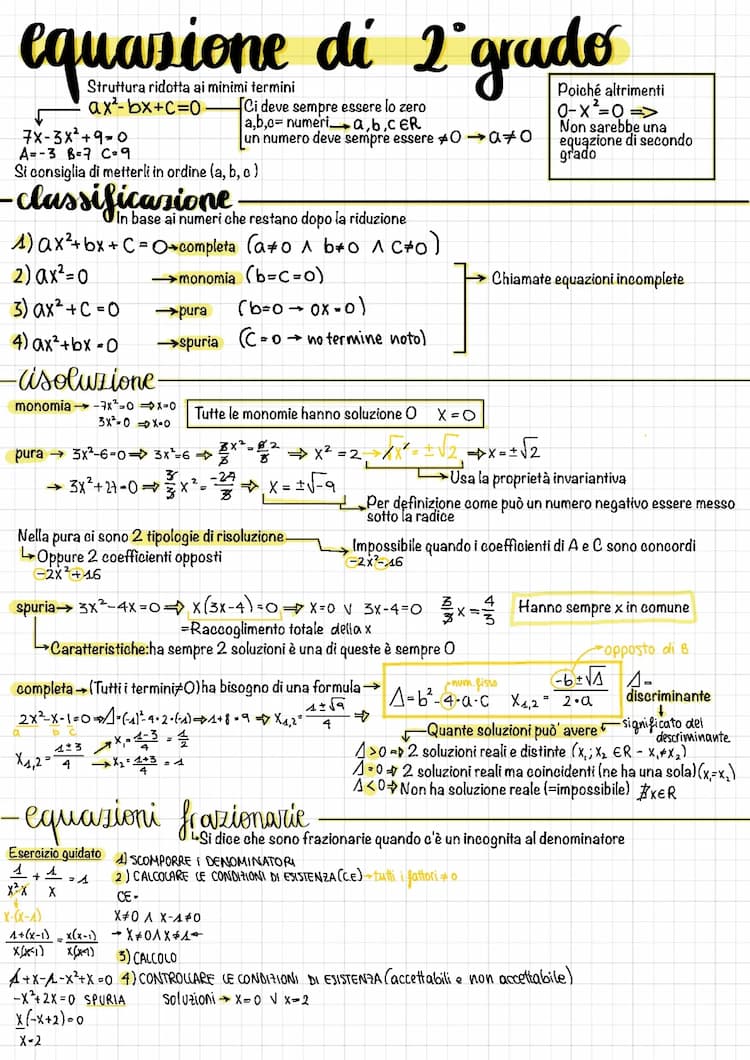 equazione di 2° grado
Struttura ridotta ai minimi termini
ax²-bx+c=0
Ci deve sempre essere lo zero
a,b,c= numeri → a,b,c ∈ R
un numero deve sempre essere ≠0 → a≠0
Poiché altrimenti
0-x²=0 =>
Non sarebbe una
equazione di secondo
grado
7x-3x²+9=0
A=-3 B=7 C=9
Si consiglia di metterli in ordine (a, b, c)
classificazione
In base ai numeri che restano dopo la riduzione
1) ax²+bx+c=0 → completa (a≠0 ∧ b≠0 ∧ c≠0)
2) ax²=0 → monomia (b=c=0)
3) ax²+c=0 → pura (b=0 → 0x=0)
4) ax²+bx=0 → spuria (c=0 → no termine noto)
Chiamate equazioni incomplete
risoluzione
monomia → -7x²=0 => x=0
3x²=0 => x=0
Tutte le monomie hanno soluzione 0 x=0
pura → 3x²-6=0 => 3x²=6 => 3/3 x²=6/3 2 => x²=2 → √x²=±√2 => x=±√2
Usa la proprietà invariantiva
→ 3x²+27=0 => 3/3 x²=-27/3 => x=±√-9
Per definizione come può un numero negativo essere messo
sotto la radice
Nella pura ci sono 2 tipologie di risoluzione
Oppure 2 coefficienti opposti
-2x²+16
Impossibile quando i coefficienti di A e C sono concordi
-2x²-16
spuria → 3x²-4x=0 => x(3x-4)=0 => x=0 ∨ 3x-4=0 3/3 x=4/3
Hanno sempre x in comune
=Raccoglimento totale della x
Caratteristiche: ha sempre 2 soluzioni è una di queste è sempre 0
opposto di B
completa → (Tutti i termini≠0) ha bisogno di una formula →
num. fisso
Δ=b²-4·a·c x1,2=-b±√Δ/2·a
Δ=
discriminante
significato del
descriminante
2x²-x-1=0 => Δ=(-1)²-4·2·(-1) => 1+8=9 => x1,2=1±√9/4 =>
a b c
x1,2=1±3/4
x1=1-3/4=-1/2
x2=1+3/4=1
Quante soluzioni può avere
Δ>0 => 2 soluzioni reali e distinte (x1; x2 ∈ R - x1≠x2)
Δ=0 => 2 soluzioni reali ma coincidenti (ne ha una sola) (x1=x2)
Δ<0 => Non ha soluzione reale (=impossibile) ∄x∈R
equazioni frazionarie
Si dice che sono frazionarie quando c'è un incognita al denominatore
Esercizio guidato
1/x²-x + 1/x = 1
x·(x-1)
1+(x-1)/x(x-1)=x(x-1)/x(x-1)
1+x-1-x²+x=0
-x²+2x=0 SPURIA
x(-x+2)=0
x=2
1) SCOMPORRE I DENOMINATORI
2) CALCOLARE LE CONDIZIONI DI ESISTENZA (CE) → tutti i fattori ≠0
CE=
x≠0 ∧ x-1≠0
→ x≠0 ∧ x≠1
3) CALCOLO
4) CONTROLLARE LE CONDIZIONI DI ESISTENZA (accettabili e non accettabile)
Soluzioni → x=0 ∨ x=2